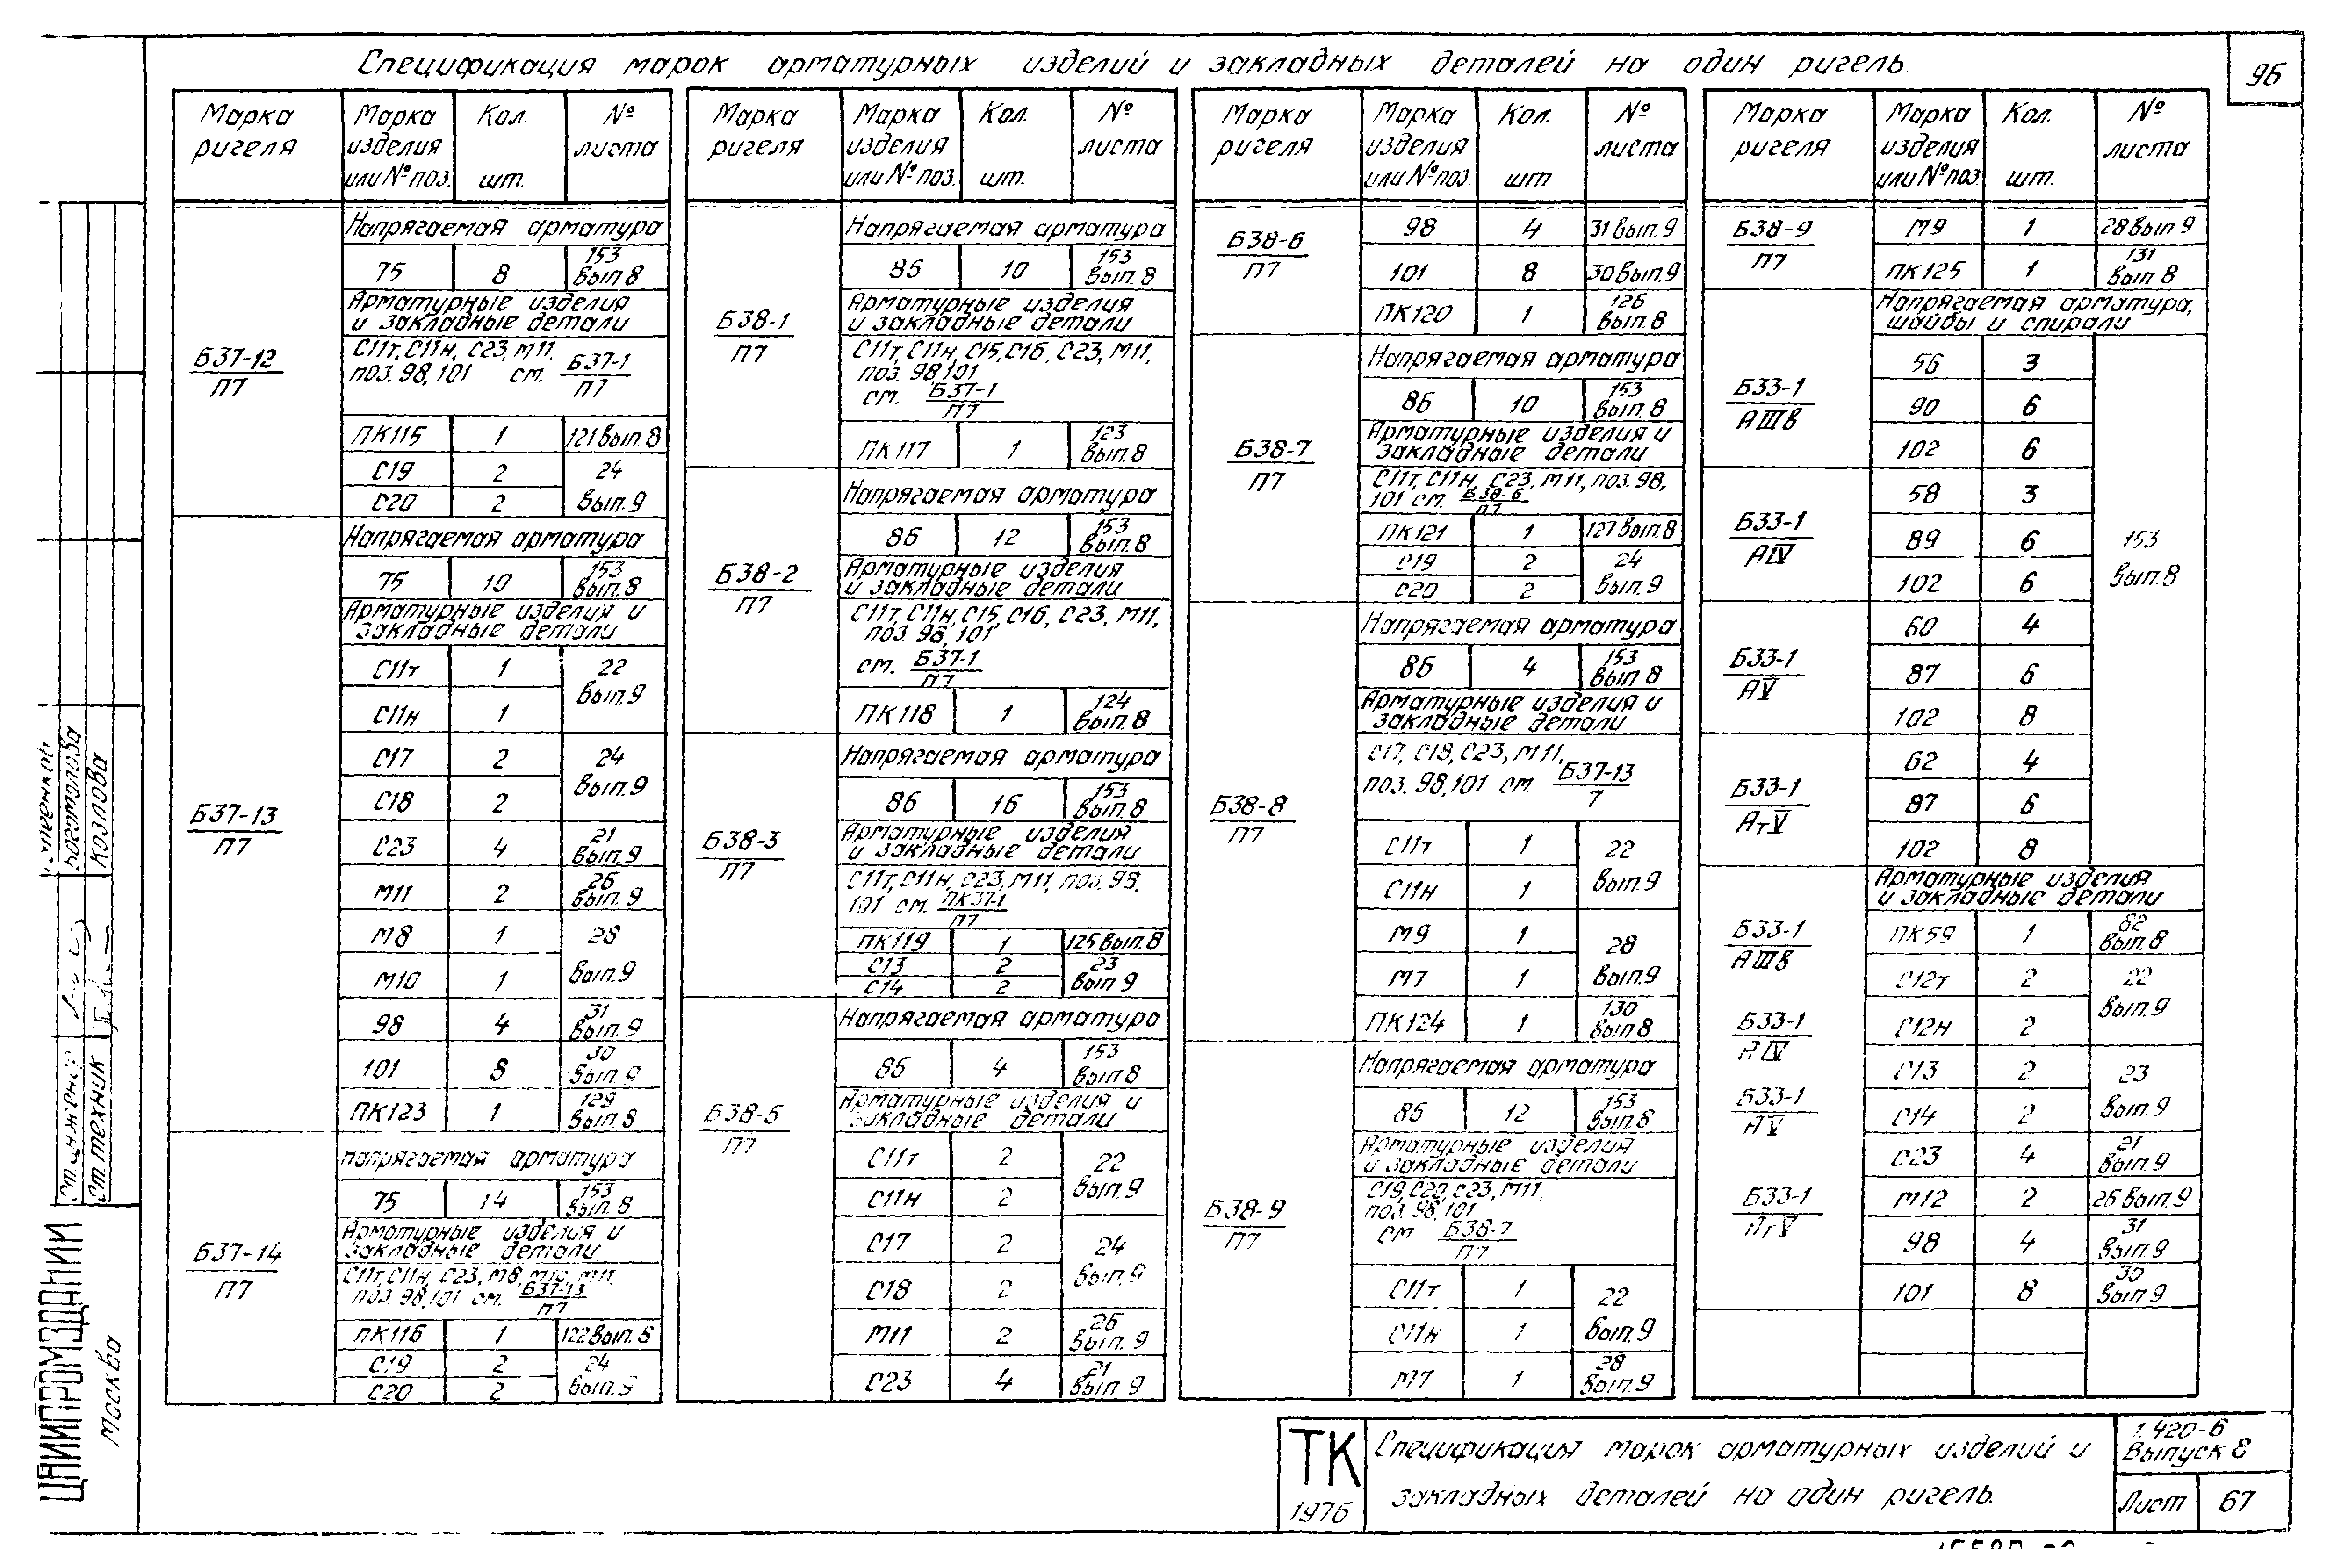 Спецификация марок арматурных изделий и закладных деталей на один ригель.
96
Марка ригеля | Марка изделия или № поз. | Кол. шт. | № листа
Б37-12/П7
Напрягаемая арматура
75 | 8 | 153 вып. 8
Арматурные изделия и закладные детали
С11т, С11н, С23, М11,
поз. 98, 101 см. Б37-1/П7
ПК115 | 1 | 121 вып. 8
С19 | 2 | 24 вып. 9
С20 | 2
Б37-13/П7
Напрягаемая арматура
75 | 10 | 153 вып. 8
Арматурные изделия и закладные детали
С11т | 1 | 22 вып. 9
С11н | 1
С17 | 2 | 24 вып. 9
С18 | 2
С23 | 4 | 21 вып. 9
М11 | 2 | 26 вып. 9
М8 | 1 | 28 вып. 9
М10 | 1
98 | 4 | 31 вып. 9
101 | 8 | 30 вып. 9
ПК123 | 1 | 129 вып. 8
Б37-14/П7
Напрягаемая арматура
75 | 14 | 153 вып. 8
Арматурные изделия и закладные детали
С11т, С11н, С23, М8, М10, М11,
поз. 98, 101 см. Б37-13/П7
ПК116 | 1 | 122 вып. 8
С19 | 2 | 24 вып. 9
С20 | 2
Марка ригеля | Марка изделия или № поз. | Кол. шт. | № листа
Б38-1/П7
Напрягаемая арматура
86 | 10 | 153 вып. 8
Арматурные изделия и закладные детали
С11т, С11н, С15, С16, С23, М11,
поз. 98, 101
см. Б37-1/П7
ПК117 | 1 | 123 вып. 8
Б38-2/П7
Напрягаемая арматура
86 | 12 | 153 вып. 8
Арматурные изделия и закладные детали
С11т, С11н, С15, С16, С23, М11,
поз. 98, 101
см. Б37-1/П7
ПК118 | 1 | 124 вып. 8
Б38-3/П7
Напрягаемая арматура
86 | 16 | 153 вып. 8
Арматурные изделия и закладные детали
С11т, С11н, С23, М11, поз. 98,
101 см. ПК37-1/П7
ПК119 | 1 | 125 вып. 8
С13 | 2 | 23 вып 9
С14 | 2
Б38-6/П7
Напрягаемая арматура
86 | 4 | 153 вып 8
Арматурные изделия и закладные детали
С11т | 2 | 22 вып. 9
С11н | 2
С17 | 2 | 24 вып. 9
С18 | 2
М11 | 2 | 26 вып. 9
С23 | 4 | 21 вып 9
Марка ригеля | Марка изделия или № поз. | Кол. шт | № листа
Б38-6/П7
98 | 4 | 31 вып. 9
101 | 8 | 30 вып. 9
ПК120 | 1 | 126 вып. 8
Б38-7/П7
Напрягаемая арматура
86 | 10 | 153 вып. 8
Арматурные изделия и закладные детали
С11т, С11н, С23, М11, поз. 98,
101 см. Б38-6/П7
ПК121 | 1 | 127 вып. 8
С19 | 2 | 24 вып. 9
С20 | 2
Б38-8/П7
Напрягаемая арматура
86 | 4 | 153 вып 8
Арматурные изделия и закладные детали
С17, С18, С23, М11,
поз. 98, 101 см. Б37-13/7
С11т | 1 | 22 вып. 9
С11н | 1
М9 | 1 | 28 вып. 9
М7 | 1
ПК124 | 1 | 130 вып 8
Б38-9/П7
Напрягаемая арматура
86 | 12 | 153 вып. 8
Арматурные изделия и закладные детали
С19, С20, С23, М11,
поз. 98, 101
см Б38-7/П7
С11т | 1 | 22 вып. 9
С11н | 1
М7 | 1 | 28 вып. 9
Марка ригеля | Марка изделия или № поз | Кол. шт. | № листа
Б38-9/П7
М9 | 1 | 28 вып 9
ПК125 | 1 | 131 вып 8
Напрягаемая арматура, шайбы и спирали
Б33-1/АIIIв
56 | 3 | 153 вып. 8
90 | 6
102 | 6
Б33-1/АIV
58 | 3
89 | 6
102 | 6
Б33-1/АV
60 | 4
87 | 6
102 | 8
Б33-1/АтV
62 | 4
87 | 6
102 | 8
Арматурные изделия и закладные детали
Б33-1/АIIIв
Б33-1/АIV
Б33-1/АV
Б33-1/АтV
ПК59 | 1 | 82 вып. 8
С12т | 2 | 22 вып. 9
С12н | 2
С13 | 2 | 23 вып. 9
С14 | 2
С23 | 4 | 21 вып. 9
М12 | 2 | 26 вып. 9
98 | 4 | 31 вып. 9
101 | 8 | 30 вып. 9
ТК
1976
Спецификация марок арматурных изделий и
закладных деталей на один ригель.
1.420-6
Выпуск 8
Лист 67
ЦНИИПРОМЗДАНИЙ
Москва
ст. инженер
ст. техник
Богомолова
Козлова